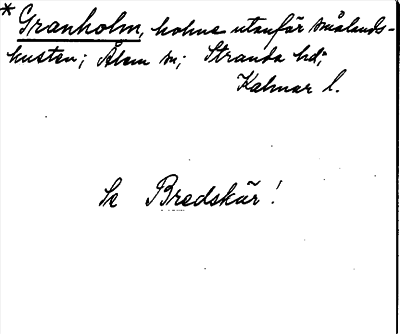 * Granholm, holme utanför smålands-
kusten; Ålem sn; Stranda hd;
Kalmar l.
Se Bredskär!